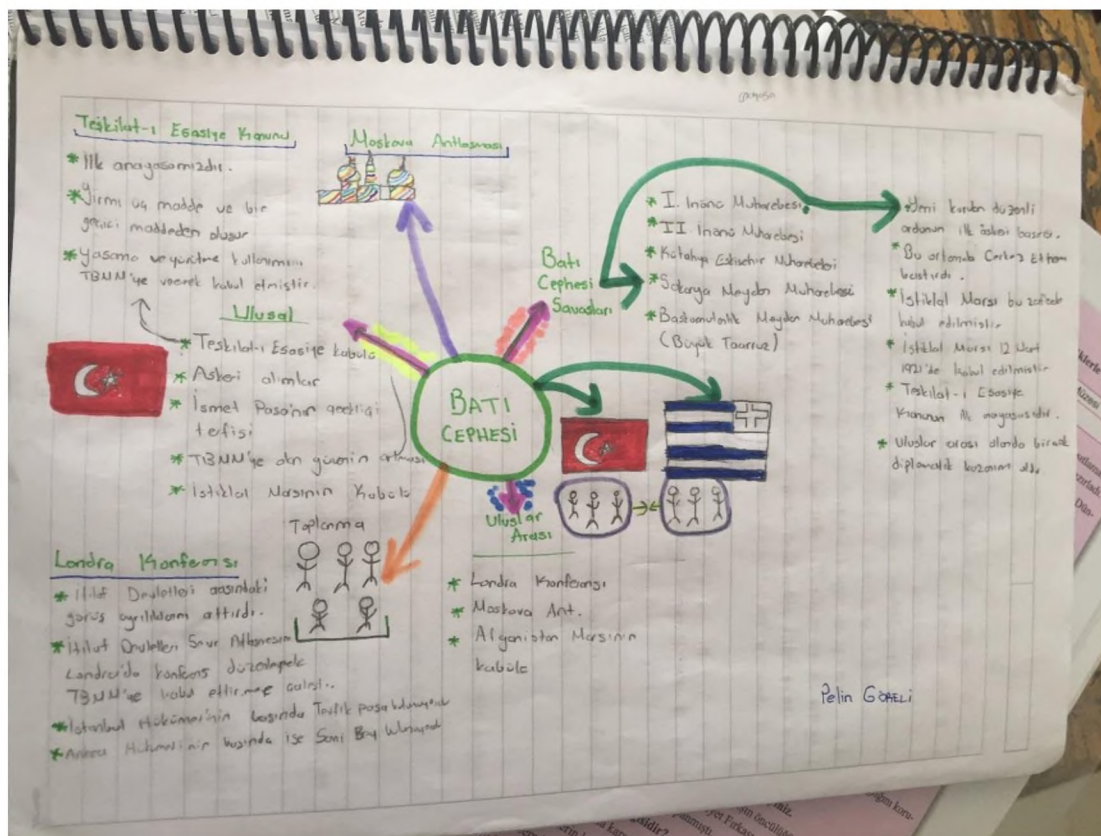 Teşkilat-ı Esasiye Kanunu
* İlk anayasamızdır.
* Yirmi üç madde ve bir
geçici maddeden oluşur
* Yasama ve yürütme kullanımını
TBMM'ye vererek kabul etmiştir.
Moskova Antlaşması
Ulusal
* Teşkilat-ı Esasiye kabulü
* Askeri alımlar
* İsmet Paşa'nın
terfisi
* TBMM'ye olan güvenin artması
* İstiklal Marşının Kabulü
Batı
Cephesi
Savaşları
* I. İnönü Muharebesi
* II İnönü Muharebesi
* Kütahya Eskişehir Muharebeleri
* Sakarya Meydan Muharebesi
* Başkomutanlık Meydan Muharebesi
(Büyük Taarruz)
* Yeni kurulan düzenli
ordunun ilk askeri başarısı.
* Bu ortamda Çerkez Ethem
bastırdı.
* İstiklal Marşı bu
kabul edilmiştir
* İstiklal Marşı 12 Mart
1921'de kabul edilmiştir
* Teşkilat-ı Esasiye
Kanunun ilk
* Uluslar arası alanda birçok
diplomatik kazanım oldu
BATI
CEPHESİ
Uluslar
Arası
* Londra Konferansı
* Moskova Ant.
* Afganistan Marşının
kabulü
Toplanma
Londra Konferansı
* İtilaf Devletleri arasındaki
görüş ayrılıklarını arttırdı.
* İtilaf Devletleri Sevr
Londra'da konferans
TBMM'ye kabul ettirmeye çalıştı.
* İstanbul Hükümetinin başında Tevfik paşa
* Ankara Hükümetinin başında ise Bey
Pelin GÖRELİ